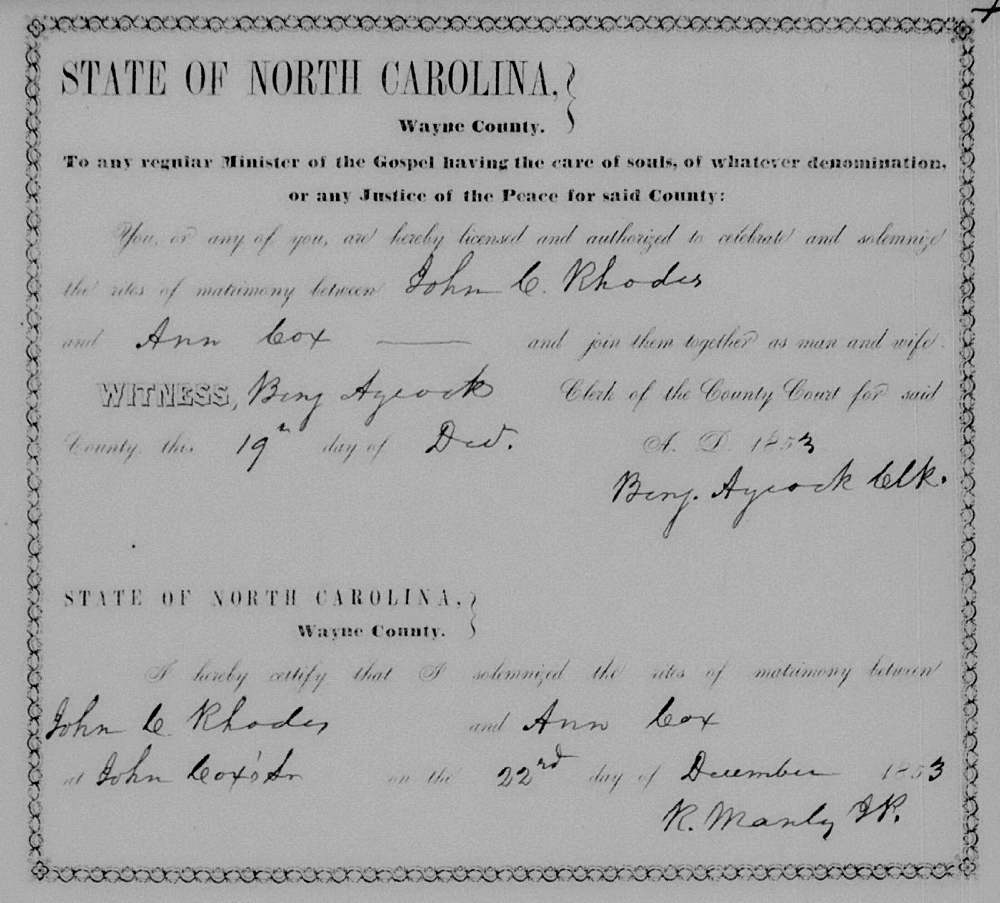 STATE OF NORTH CAROLINA,
Wayne County.
To any regular Minister of the Gospel having the care of souls, of whatever denomination,
or any Justice of the Peace for said County:
You, or any of you, are hereby licensed and authorized to celebrate and solemnize
the rites of matrimony between John C. Rhodes
and Ann Cox and join them together as man and wife.
WITNESS, Benj Aycock Clerk of the County Court for said
County, this 19th day of Dec. A. D. 1853
Benj. Aycock Clk.
STATE OF NORTH CAROLINA,
Wayne County.
I hereby certify that I solemnized the rites of matrimony between
John C. Rhodes and Ann Cox
at John Cox's Sr on the 22rd day of December 1853
R. Manly JP.